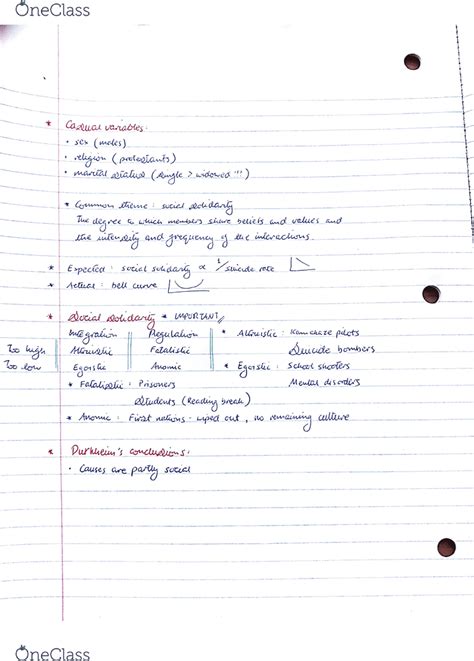 OneClass
* Casual variables:
• sex (males)
• religion (protestants)
• marital status (single > widowed
* Common theme: social solidarity
The degree to which members share beliefs and values and
the intensity and frequency of the interactions.
* Expected: social solidarity ∝ 1/suicide rate
* Actual: bell curve
* Social solidarity * IMPORTANT
Integration Regulation * Altruistic: Kamikaze pilots
Too high Altruistic Fatalistic Suicide bombers
Too low Egoistic Anomic * Egoistic: School shooters
* Fatalistic: Prisoners Mental disorders
Students (Reading break)
* Anomic: First nations - wiped out, no remaining culture
* Durkheim's conclusions:
• Causes are partly social
OneClass